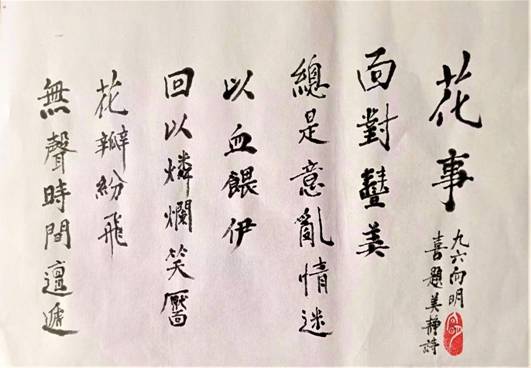 花事
九六向明
喜題美靜詩
面對美
總是意亂情迷
以血餵伊
回以燐爛笑靨
花瓣紛飛
無聲時間邅遞